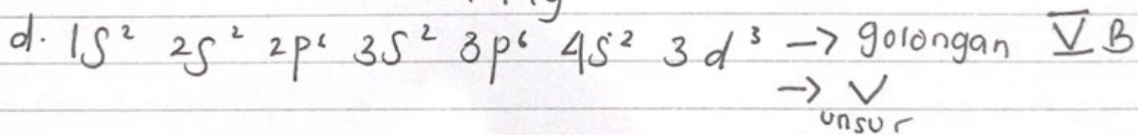 d. 1S² 2S² 2p⁶ 3S² 3p⁶ 4S² 3d³ → golongan VB
→ V
unsur